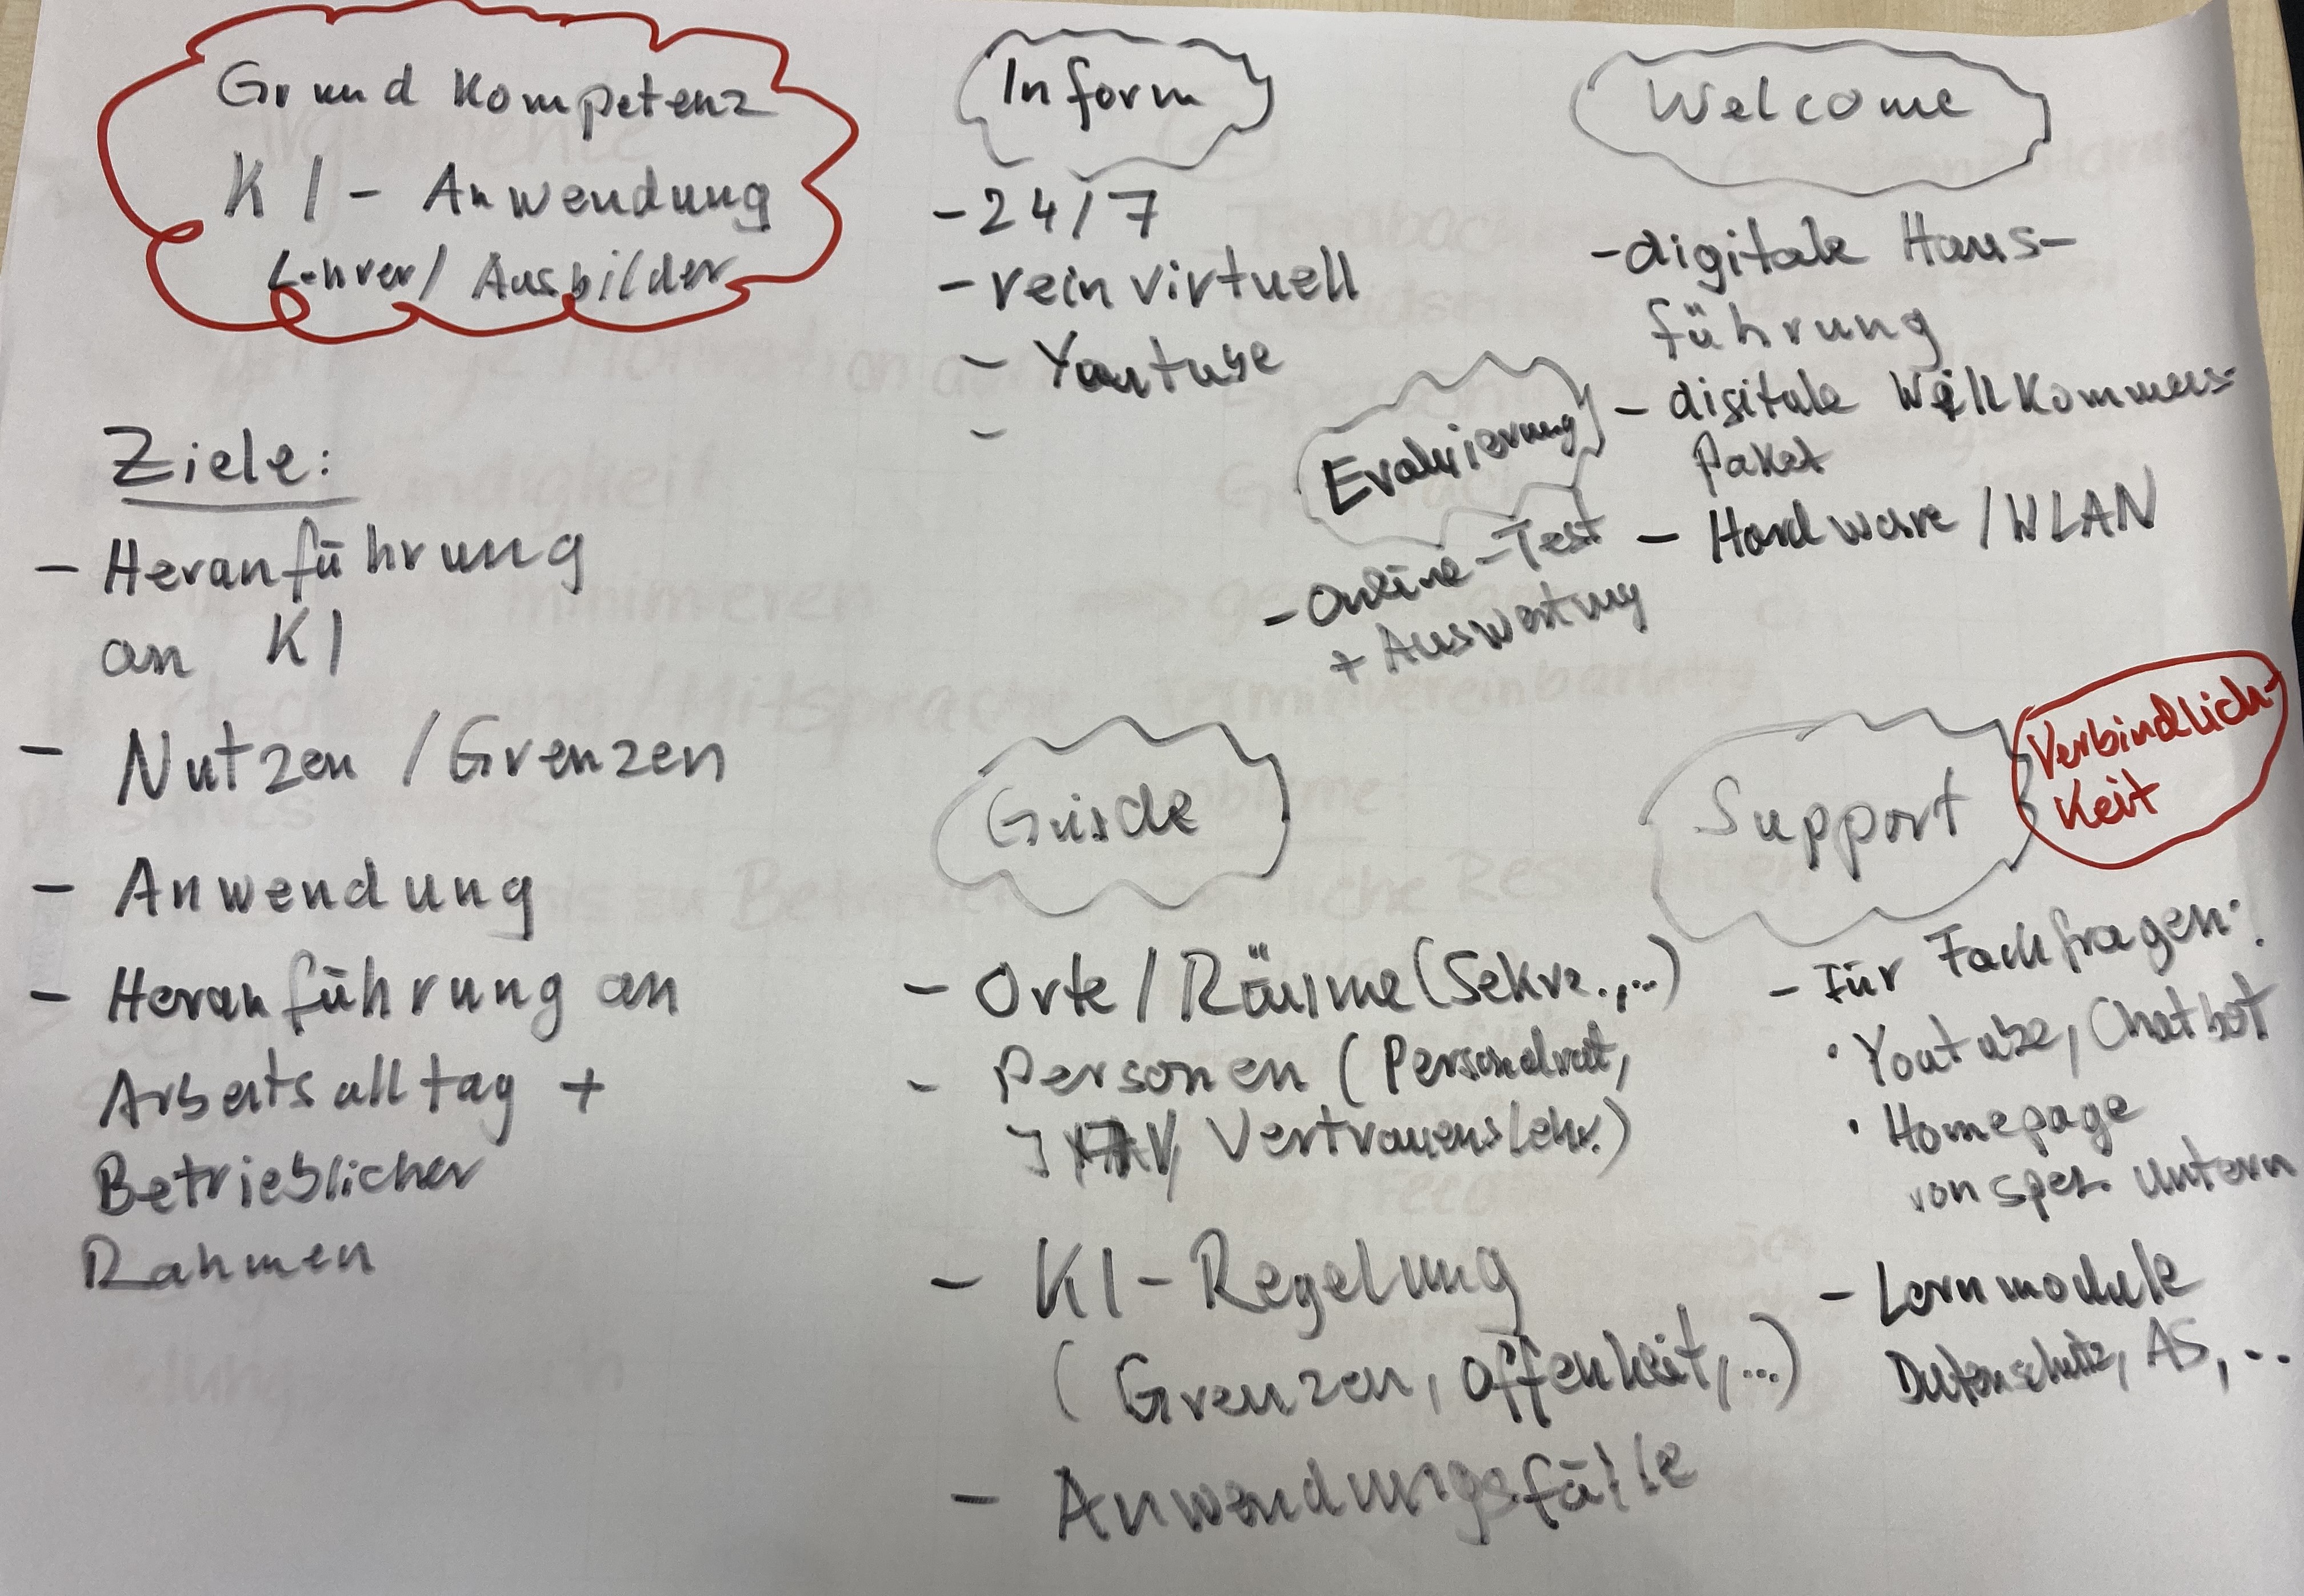 Grundkompetenz
KI - Anwendung
Lehrer / Ausbilder
Ziele:
- Heranführung
an KI
- Nutzen / Grenzen
- Anwendung
- Heranführung an
Arbeitsalltag +
Betrieblicher
Rahmen
Inform
- 24/7
- rein virtuell
- Youtube
-
Welcome
- digitale Haus-
führung
- digitale Willkommens-
Paket
- Hardware / WLAN
Evaluierung
- Online-Test
+ Auswertung
Guide
- Orte / Räume (Sekre.,...)
- Personen (Personalrat,
Vertrauenslehr.)
- KI-Regelung
(Grenzen, Offenheit,...)
- Anwendungsfälle
Support
Verbindlich-
keit
- Für Fachfragen:
· Youtube, Chatbot
· Homepage
von spez. Untern
- Lernmodule
Datenschutz, AS, ...